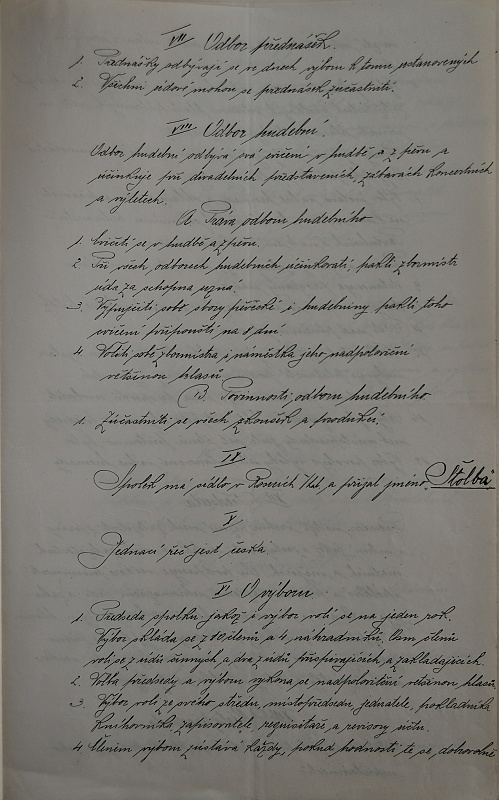 VII Odbor přednášek.
1. Přednášky odbývají se ve dnech výborem k tomu ustanovených
2. Všichni údové mohou se přednášek zúčastniti.
VIII Odbor hudební.
Odbor hudební odbývá svá cvičení v hudbě a zpěvu a
účinkuje při divadelních představeních, zábavách koncertních
a výletech.
A. Práva odboru hudebního
1. Cvičiti se v hudbě a zpěvu.
2. Při všech odborech hudebních účinkovati, pakli zbormistr
úda za schopna uzná.
3. Vypůjčiti sobě sbory pěvecké i hudebniny pakli toho
cvičení připouští na 8 dní
4. Voliti sobě zbormistra i náměstka jeho nadpoloviční
většinou hlasů
B. Povinnosti odboru hudebního
1. Zúčastniti se všech zkoušek a produkcí.
IX
Spolek má sídlo v a přijal jméno „Stolba"
X
Jednací řeč jest česká.
XI O výboru
1. Předseda spolku jakož i výbor volí se na jeden rok.
Výbor skládá se z 10 členů a 4 náhradníků. Osm členů
volí se z údů činných, a dva z údů přispívajících a zakladajících.
2. Volba předsedy a výboru vykoná se nadpoloviční většinou hlasů.
3. Výbor volí ze svého středu, místopředsedu, jednatele, pokladníka
knihovníka zapisovatele, requisitáře, a revisory účtu.
4 Členem výboru zůstává každý, pokud hodnosti té se dobrovolně